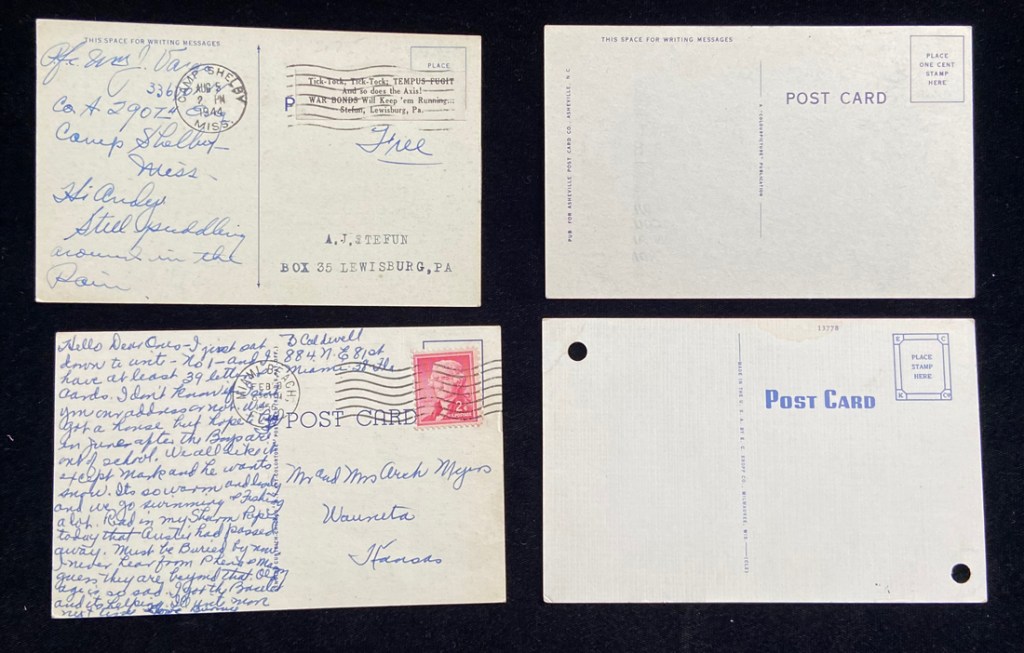 THIS SPACE FOR WRITING MESSAGES
Pfc Wm. J.
336
Co. A 290th
Camp Shelby
Miss
Hi Andy
Still puddling
around in the
Rain
CAMP SHELBY
AUG 5
2 PM
1944
MISS.
PLACE
Tick-Tock, Tick-Tock; TEMPUS FUGIT
And so does the Axis!
WAR BONDS Will Keep 'em Running...
Stefun, Lewisburg, Pa.
P
Free
A.J. STEFUN
BOX 35 LEWISBURG, PA
THIS SPACE FOR WRITING MESSAGES
PUB FOR ASHEVILLE POST CARD CO., ASHEVILLE, N.C.
POST CARD
PLACE
ONE CENT
STAMP
HERE
Hello Dear Ones - I just sat
down to write - No 1 - and I
have at least 39 letters &
cards. I don't know if
our address or not. We
got a house but hope to
in June after the Boys are
out of school. We all like it
except Mark and he wants
snow. Its so warm and lovely
and we go swimming & Fishing
a lot. Read in my Sharon Paper
today that Austie had passed
away. Must be Buried by now
I never hear from
guess they are beyond that. Old
age is so sad. I got the
and its helping.
B Coldwell
884 N.E 81 st
Miami
MIAMI BEACH
FEB
POST CARD
2¢
Mr and Mrs Arch Myers
Wauneta
Kansas
13778
MADE IN THE U.S.A. BY E. C. KROPP CO., MILWAUKEE, WIS.
POST CARD
E C
PLACE
STAMP
HERE
K Co